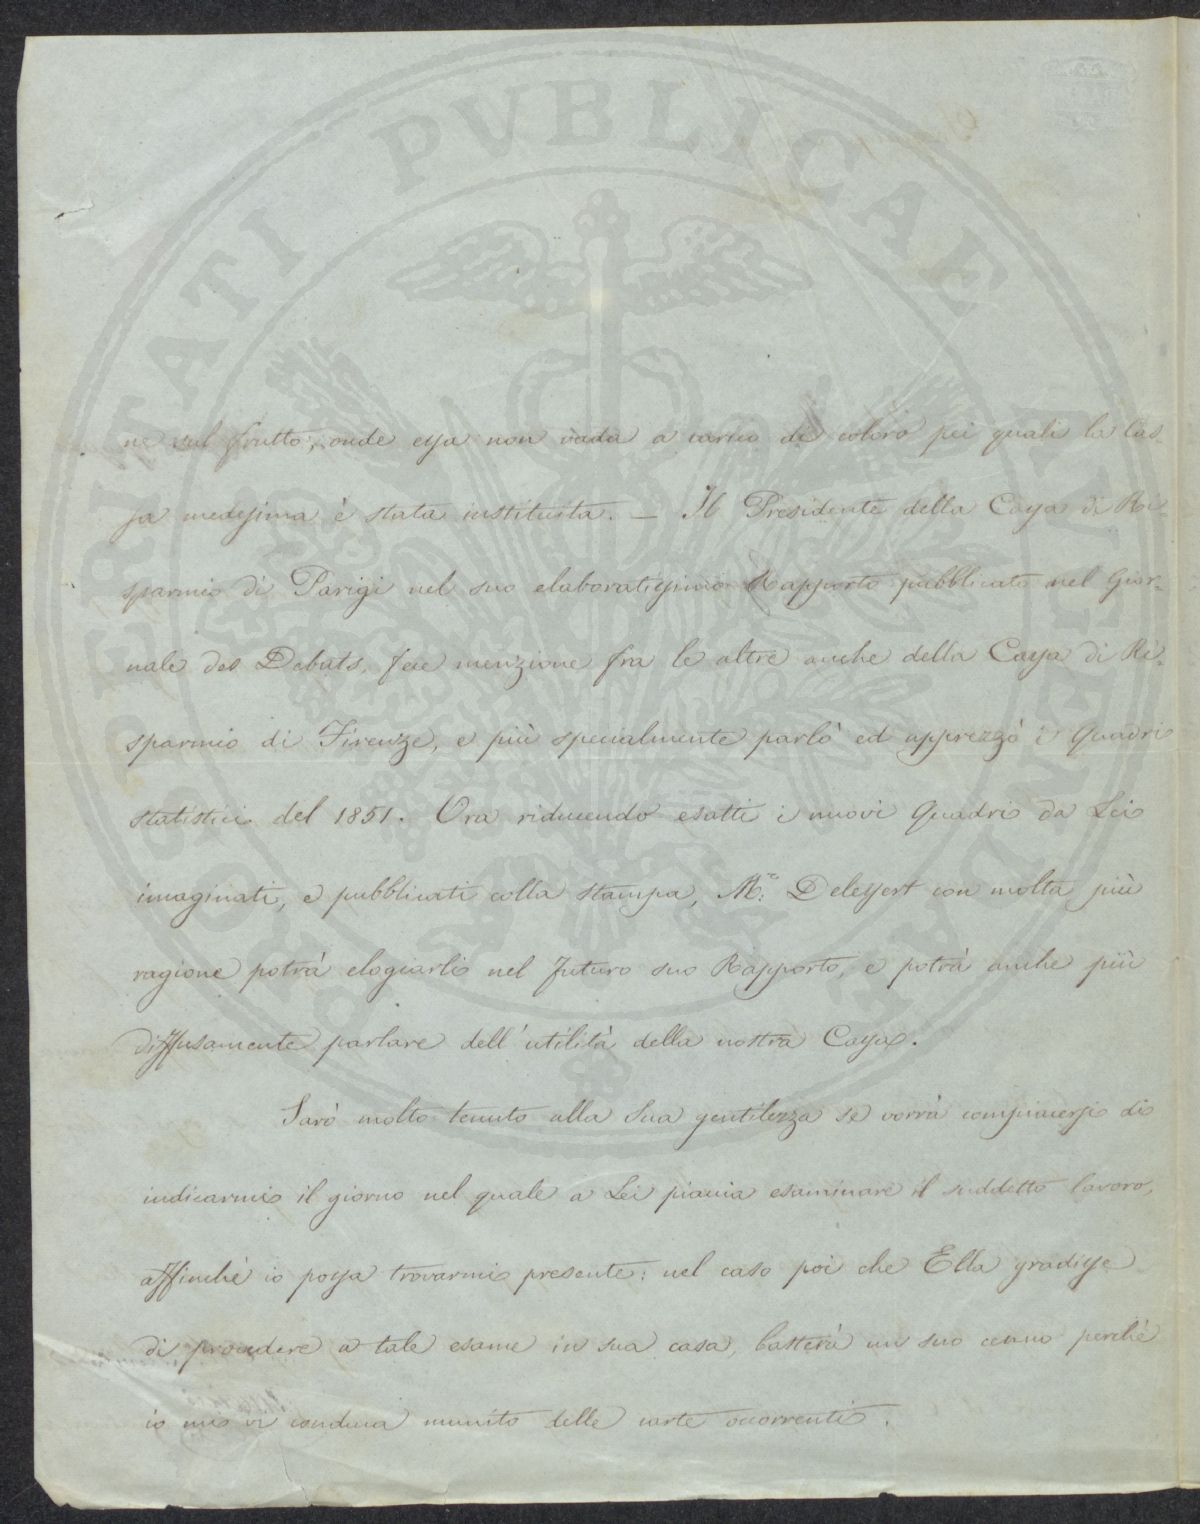 PROSPERITATI PUBLICAE
ne sul frutto, onde essa non vada a carico di coloro pei quali la Cas-
sa medesima è stata instituita. — Il Presidente della Cassa di Ri-
sparmio di Parigi nel suo elaboratissimo Rapporto pubblicato nel Gior-
nale des Debats, fece menzione fra le altre anche della Cassa di Ri-
sparmio di Firenze, e più specialmente parlò ed apprezzò i Quadri
statistici del 1851. Ora riducendo esatti i nuovi Quadri da Lei
imaginati, e pubblicati colla stampa, Mr. Delessert con molta più
ragione potrà elogiarli nel futuro suo Rapporto, e potrà anche più
diffusamente parlare dell'utilità della nostra Cassa.
Sarò molto tenuto alla Sua gentilezza se vorrà compiacersi di
indicarmi il giorno nel quale a Lei piaccia esaminare il suddetto lavoro,
affinchè io possa trovarmi presente; nel caso poi che Ella gradisse
di procedere a tale esame in sua casa, basterà un suo cenno perchè
io mi vi conduca munito delle carte occorrenti.